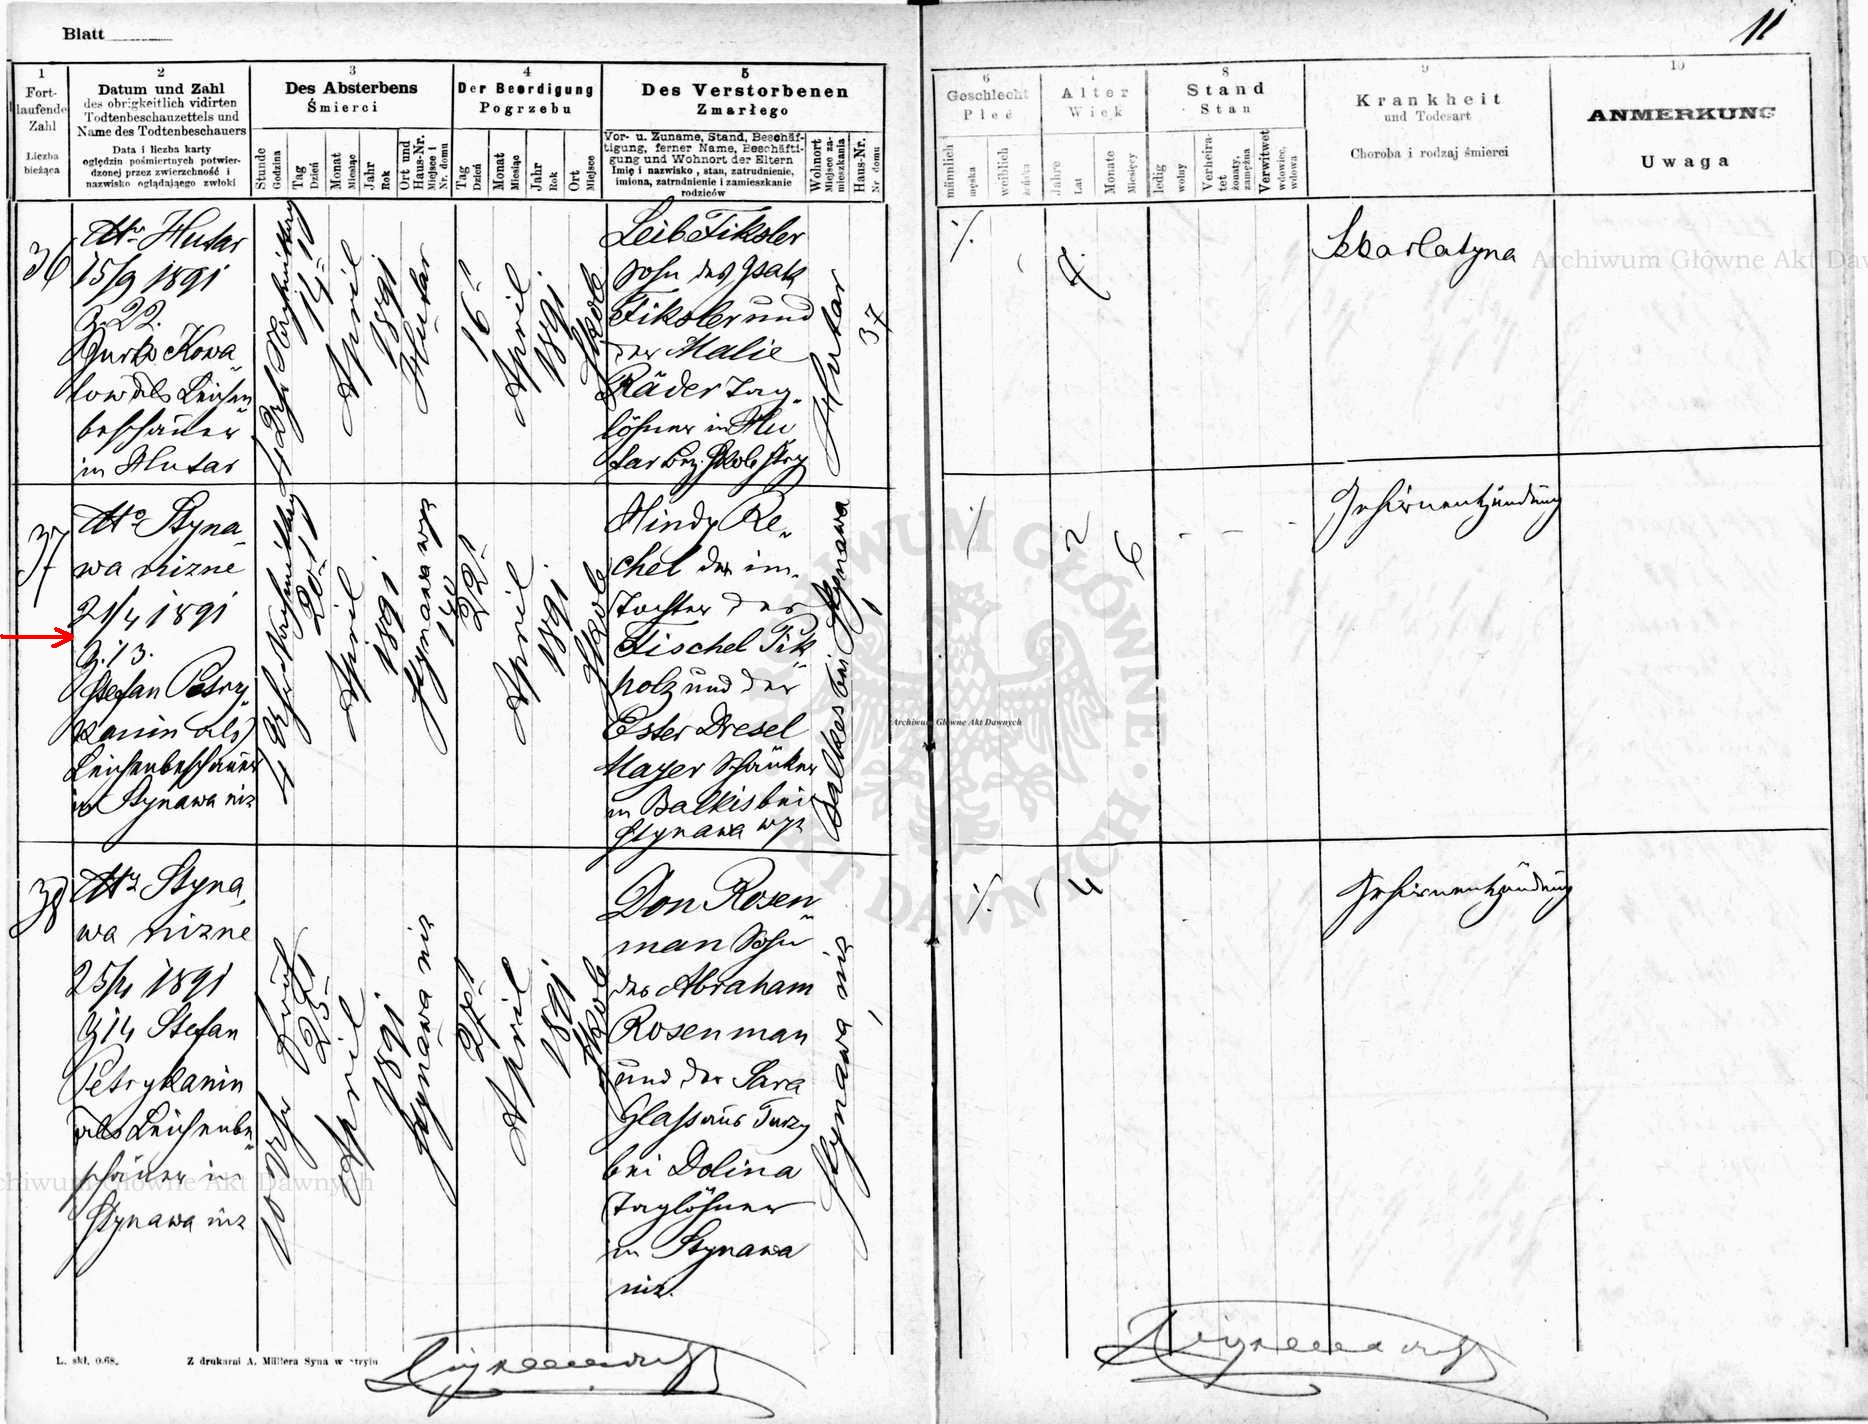 Blatt
11
1
Fort-
laufende
Zahl
Liczba
bieżąca
2
Datum und Zahl
des obrigkeitlich vidirten
Todtenbeschauzettels und
Name des Todtenbeschauers
Data i liczba karty
oględzin pośmiertnych potwier-
dzonej przez zwierzchność i
nazwisko oglądającego zwłoki
3
Des Absterbens
Śmierci
Stunde
Godzina
Tag
Dzień
Monat
Miesiąc
Jahr
Rok
Ort und
Haus-Nr.
Miejsce i
Nr. domu
4
Der Beerdigung
Pogrzebu
Tag
Dzień
Monat
Miesiąc
Jahr
Rok
Ort
Miejsce
5
Des Verstorbenen
Zmarłego
Vor- u. Zuname, Stand, Beschäf-
tigung, ferner Name, Beschäfti-
gung und Wohnort der Eltern
Imię i nazwisko, stan, zatrudnienie,
imiona, zatrudnienie i zamieszkanie
rodziców
Wohnort
Miejsce za-
mieszkania
Haus-Nr.
Nr domu
6
Geschlecht
Płeć
männlich
męska
weiblich
żeńska
7
Alter
Wiek
Jahre
Lat
Monate
Miesięcy
8
Stand
Stan
ledig
wolny
Verheira-
tet
żonaty,
zamężna
Verwitwet
wdowiec,
wdowa
9
Krankheit
und Todesart
Choroba i rodzaj śmierci
10
ANMERKUNG
Uwaga
36
Hutar
15/9 1891
Z. 22.
Kowa
low als Leichen
beschauer
in Hutar
Nachmittag
14
April
1891
Hutar
16
April
1891
Skole
Leib Fiksler
Sohn des Isak
Fiksler und
der Malie
Räder Tag-
löhner in Hu
tar Bez. Skole Stry
Hutar
37
4
Skarlatyna
37
Styna-
wa nizne
21/4 1891
Z. 13.
Stefan Petry-
kanin als
Leichenbeschauer
in Stynawa niz
4 Uhr Nachmittag
20
April
1891
Stynawa wyz
22
April
1891
Skole
Hindy Re-
chel der
Tochter des
Fischel Pik
holz und der
Ester Dresel
Mayer Schänker
in Balkis bei
Stynawa wyz
Balkis bei Stynawa
2
6
Gehirnentzündung
38
Styna-
wa nizne
25/4 1891
Z 14 Stefan
Petrykanin
als Leichenbe-
schauer in
Stynawa niz
10 Uhr früh
25
April
1891
Stynawa niz
27
April
1891
Skole
Don Rosen-
man Sohn
des Abraham
Rosenman
und der Sara
Glass aus Turzy
bei Dolina
Taglöhner
in Stynawa
niz.
Stynawa niz
4
Gehirnentzündung
L. skł. 0.68.
Z drukarni A. Müllera Syna w Stryju
Archiwum Główne Akt Dawnych
ARCHIWUM GŁÓWNE AKT DAWNYCH
Archiwum Główne Akt Dawnych
Archiwum Główne Akt Daw